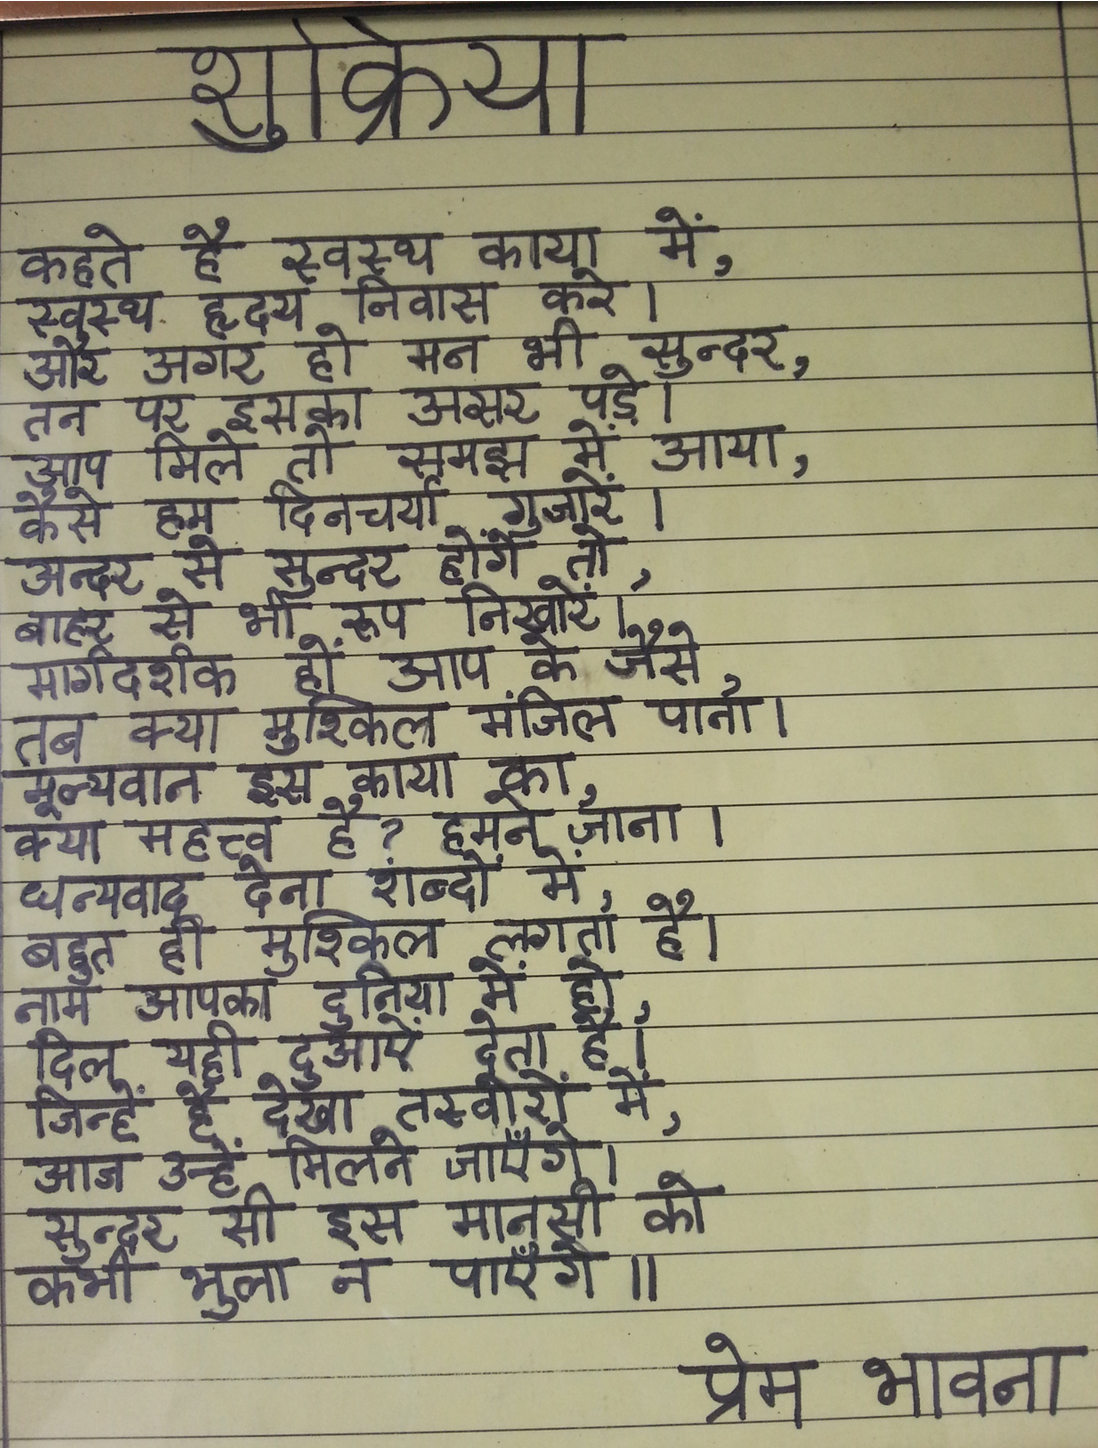 शुक्रिया
कहते है स्वस्थ काया में,
स्वस्थ हृदय निवास करे।
और अगर हो मन भी सुन्दर,
तन पर इसका असर पड़े।
आप मिले तो समझ में आया,
कैसे हम दिनचर्या गुजारें।
अन्दर से सुन्दर होगें तो,
बाहर से भी रूप निखारें।
मार्गदर्शक हों आप के जैसे,
तब क्या मुश्किल मंजिल पाना।
मूल्यवान इस काया का,
क्या महत्त्व है? हमने जाना।
धन्यवाद देना शब्दों में,
बहुत ही मुश्किल लगता है।
नाम आपका दुनिया में हो,
दिल यही दुआएं देता है।
जिन्हें है देखा तस्वीरों में,
आज उन्हें मिलने जाएँगे।
सुन्दर सी इस मानुसी को
कभी भुला न पाएँगे॥
प्रेम भावना